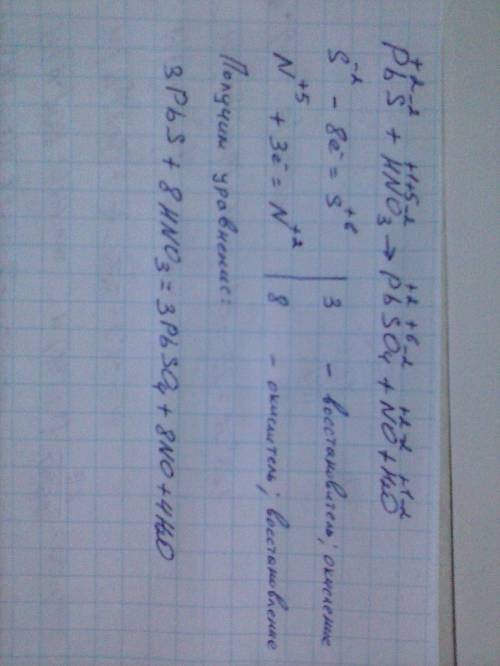 Pb⁺²S⁻² + H⁺¹N⁺⁵O₃⁻² → Pb⁺²S⁺⁶O₄⁻² + N⁺²O⁻² + H₂⁺¹O⁻²
S⁻² - 8ē = S⁺⁶ | 3 - восстановитель; окисление
N⁺⁵ + 3ē = N⁺² | 8 - окислитель; восстановление
Получим уравнение:
3PbS + 8HNO₃ = 3PbSO₄ + 8NO + 4H₂O